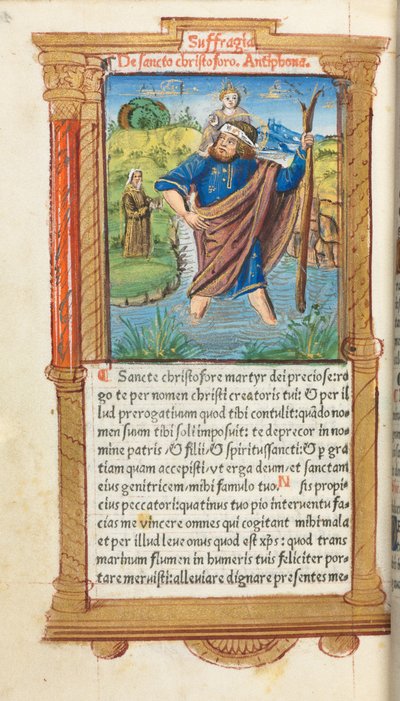 Suffragia
De sancto christoforo. Antiphona.
Sancte christofore martyr dei preciose: ro
go te per nomen christi creatoris tui: & per il
lud prerogatiuum quod tibi contulit: quãdo no
men suum tibi soli imposuit: te deprecor in no
mine patris & filii & spiritussancti: & p gra
tiam quam accepisti ut erga deum et sanctam
eius genitricem mihi famulo tuo. N sis propi
cius peccatori: quatinus tuo pio interuentu fa
cias me vincere omnes qui cogitant mihi mala
et per illud leue onus quod est xp̃s: quod trans
marinum flumen in humeris tuis feliciter por
tare meruisti: alleuiare dignare presentes me